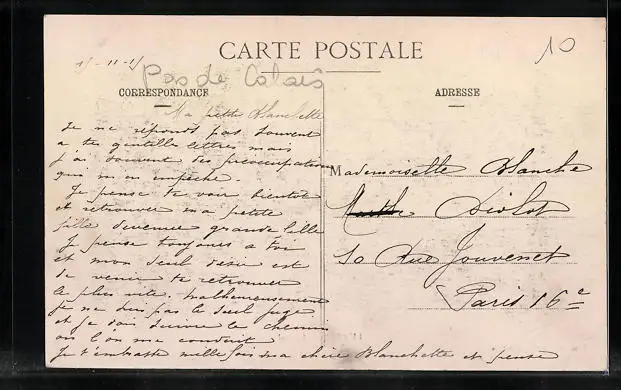 15-11-15
CARTE POSTALE
10
Pas de Calais
CORRESPONDANCE
ADRESSE
Ma petite Blanchette
Je ne réponds pas souvent
a tes gentilles lettres mais
j'ai souvent des préoccupations
qui m'en empêche
Je pense te voir bientôt
et retrouver ma petite
fille devenue grande fille
Je pense toujours a toi
et mon seul désir est
de venir te retrouver
le plus vite. Malheureusement
je ne suis pas le seul juge
et je dois suivre le chemin
où l'on me conduit
Je t'embrasse mille fois ma chère Blanchette et pense
Mademoiselle Blanche
Diolot
10 Rue Jouvenet
Paris 16e